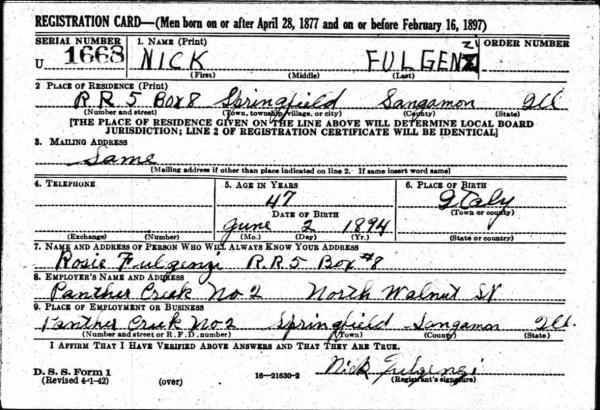 REGISTRATION CARD—(Men born on or after April 28, 1877 and on or before February 16, 1897)
SERIAL NUMBER 1. NAME (Print) ORDER NUMBER
U 1668 NICK FULGENZI
(First) (Middle) (Last)
2. PLACE OF RESIDENCE (Print)
R.R 5 Box 8 Springfield Sangamon Ill
(Number and street) (Town, township, village, or city) (County) (State)
[THE PLACE OF RESIDENCE GIVEN ON THE LINE ABOVE WILL DETERMINE LOCAL BOARD
JURISDICTION; LINE 2 OF REGISTRATION CERTIFICATE WILL BE IDENTICAL]
3. MAILING ADDRESS
Same
[Mailing address if other than place indicated on line 2. If same insert word same]
4. TELEPHONE 5. AGE IN YEARS 6. PLACE OF BIRTH
47 Italy
DATE OF BIRTH (Town or county)
June 2 1894
(Exchange) (Number) (Mo.) (Day) (Yr.) (State or country)
7. NAME AND ADDRESS OF PERSON WHO WILL ALWAYS KNOW YOUR ADDRESS
Rosie Fulgenzi R.R.5 Box #8
8. EMPLOYER'S NAME AND ADDRESS
Panther Creek No 2 North Walnut St
9. PLACE OF EMPLOYMENT OR BUSINESS
Panther Creek No 2 Springfield Sangamon Ill.
(Number and street or R. F. D. number) (Town) (County) (State)
I AFFIRM THAT I HAVE VERIFIED ABOVE ANSWERS AND THAT THEY ARE TRUE.
Nick Fulgenzi
D. S. S. Form 1 (Registrant's signature)
(Revised 4-1-42) (over) 16—21630-2